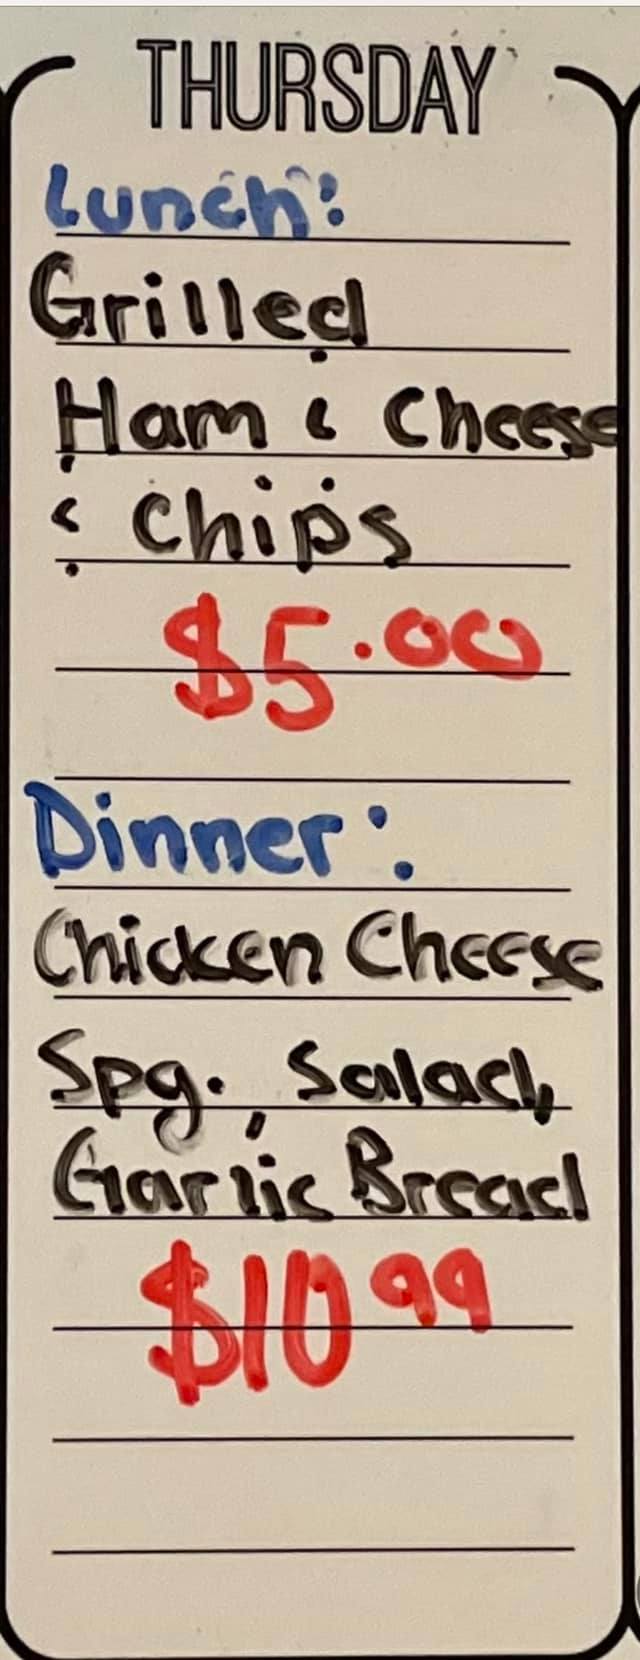 THURSDAY
Lunch:
Grilled
Ham & Cheese
& Chips
$5.00
Dinner:
Chicken Cheese
Spg., Salad,
Garlic Bread
$10 99